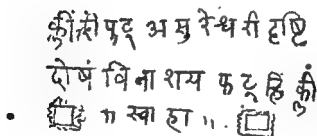 क्लीं ह्रीं फुट् असुरेश्वरी दृष्टि
दोषं विनाशय फट् ह्रिं क्लीं
॥ स्वाहा ॥